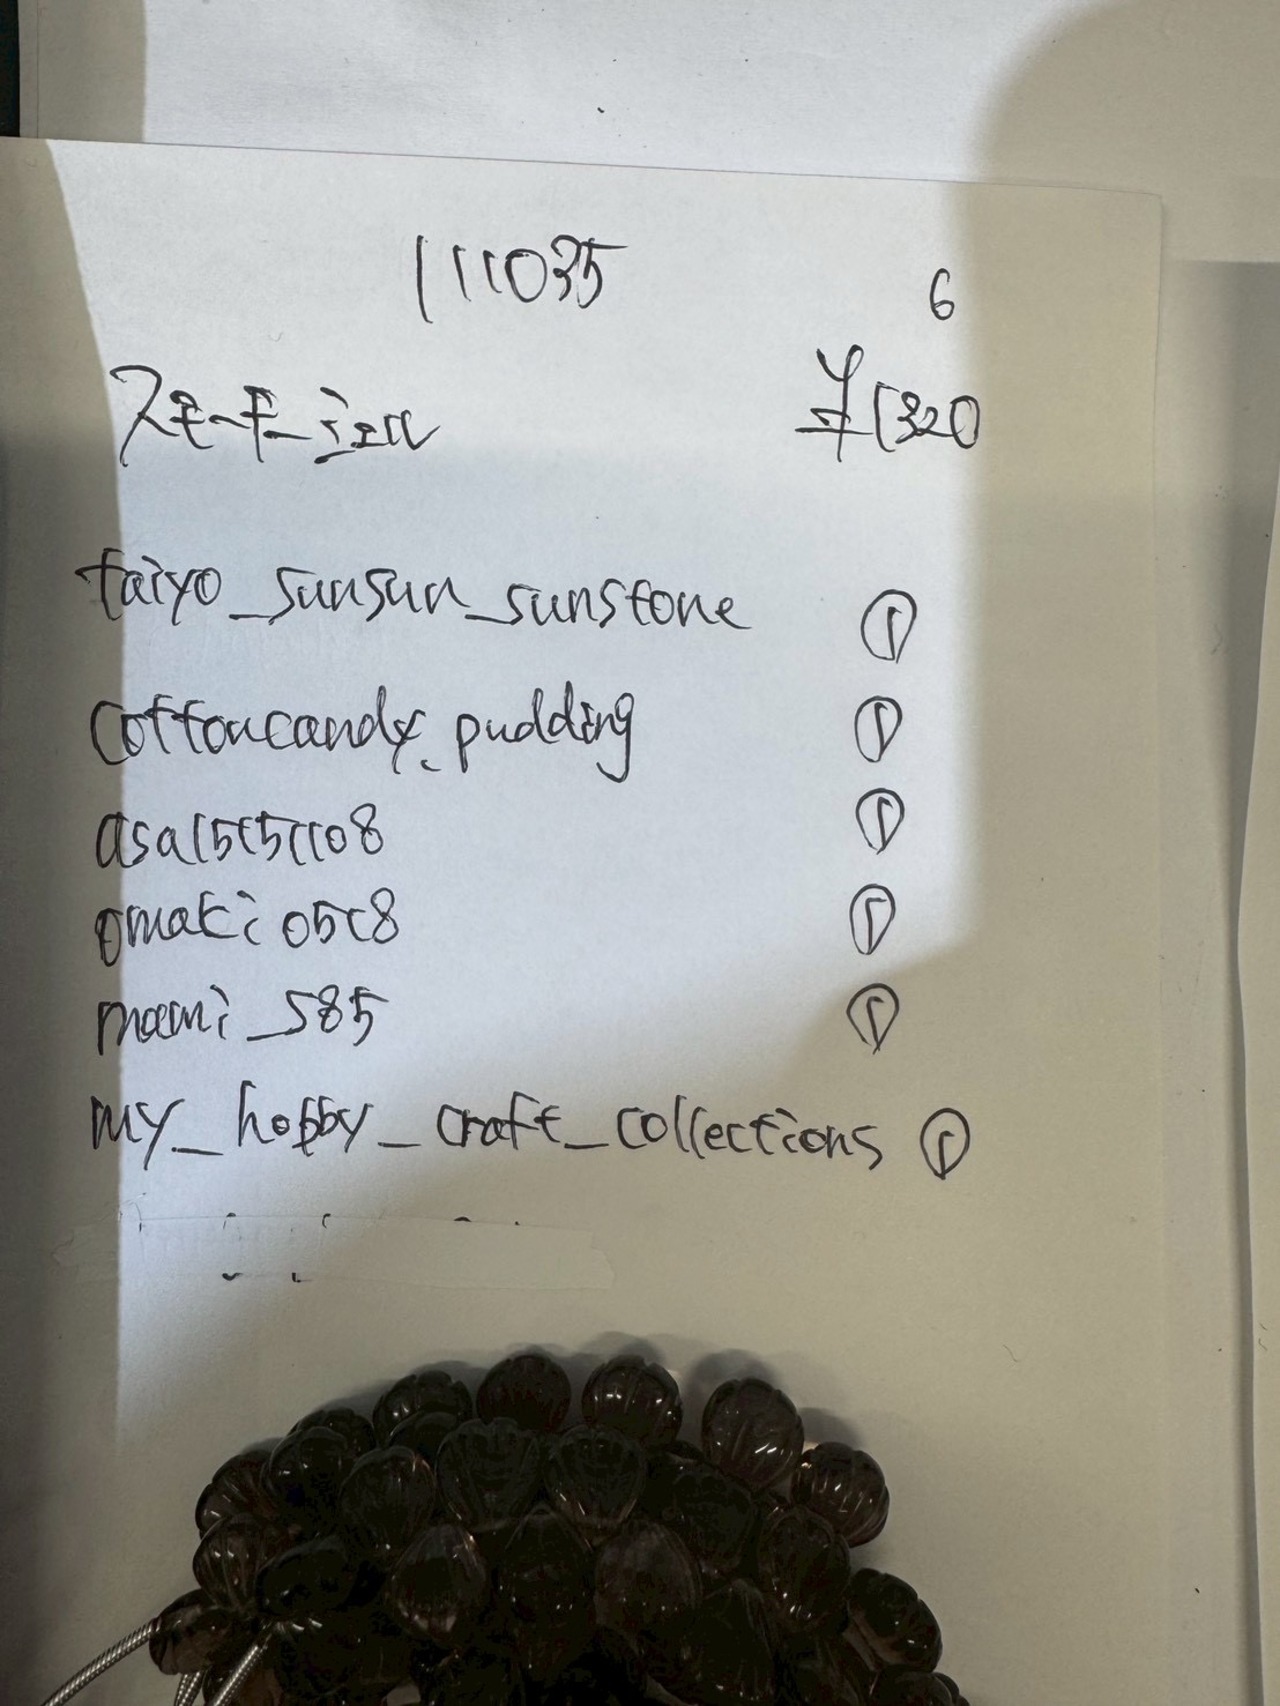 111035 6
スモーキーシェル ¥1320
taiyo_sunsun_sunstone ①
cottoncandy_pudding ①
asa15151108 ①
omaki0518 ①
mami_585 ①
my_hobby_craft_collections ①